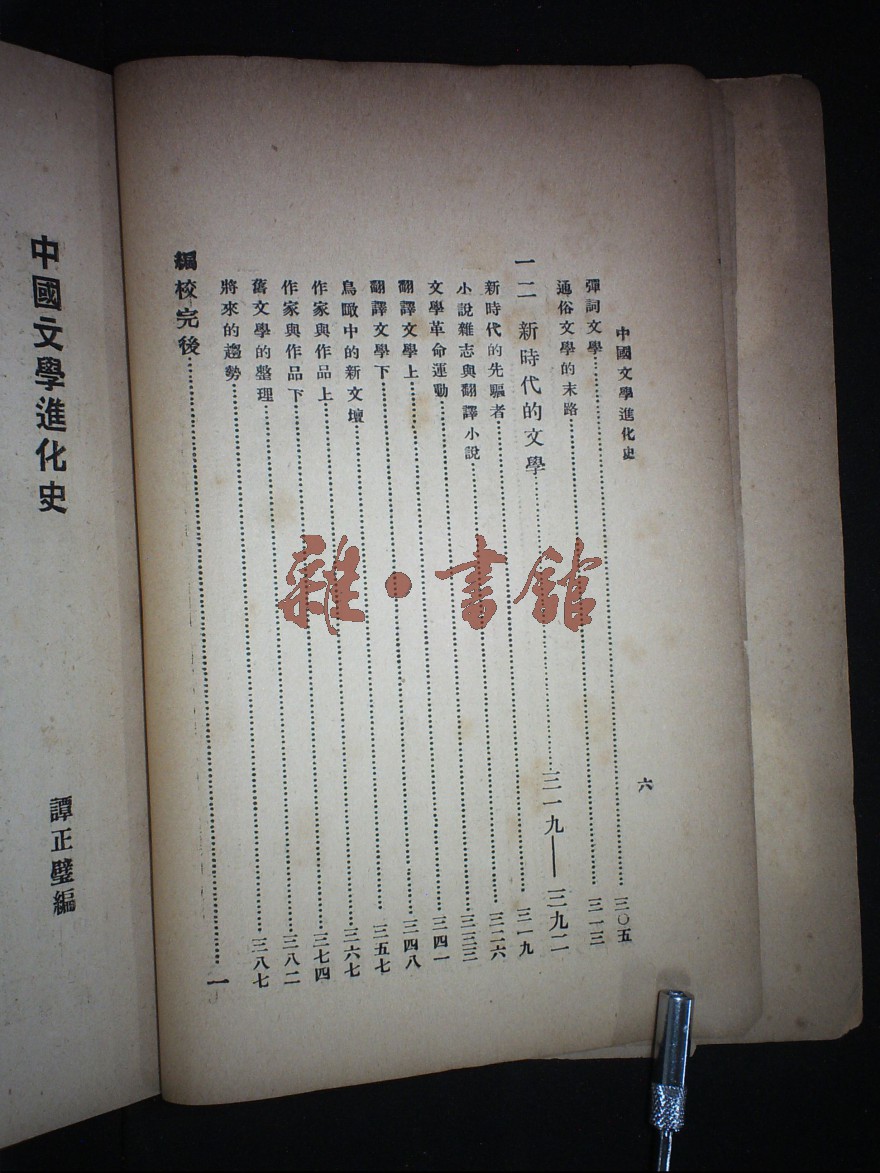 中國文學進化史 六
彈詞文學……三〇五
通俗文學的末路……三一三
一二 新時代的文學……三一九——三九二
新時代的先驅者……三一九
小說雜志與翻譯小說……三二六
文學革命運動……三三三
翻譯文學上……三四一
翻譯文學下……三四八
鳥瞰中的新文壇……三五七
作家與作品上……三六七
作家與作品下……三七四
舊文學的整理……三八二
將來的趨勢……三八七
編校完後……一
中國文學進化史
譚正璧編
雜·書館